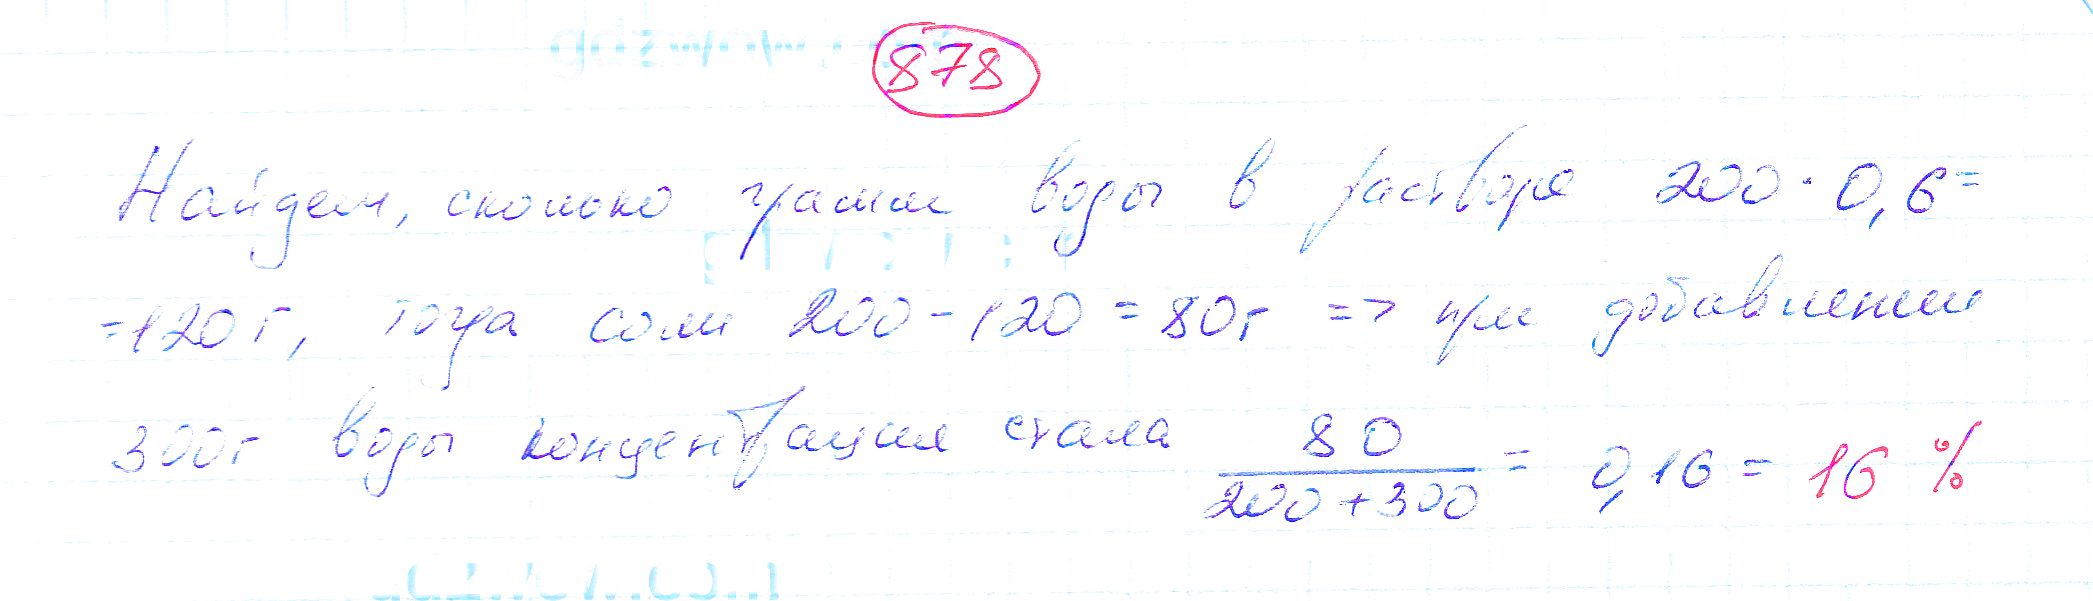 878
Найдем, сколько грамм воды в растворе 200 · 0,6 =
= 120 г, тогда соли 200 - 120 = 80г => при добавлении
300г воды концентрация стала 80/(200 + 300) = 0,16 = 16 %